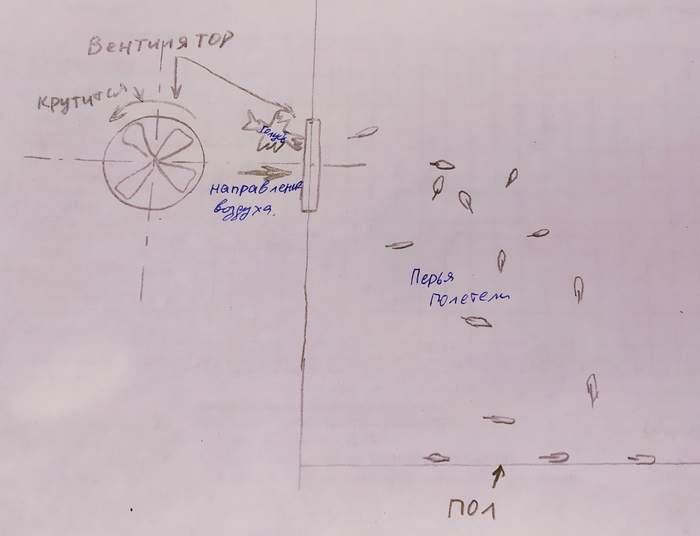 Вентилятор
крутится
Голубь
направление
воздуха.
Перья
полетели
пол